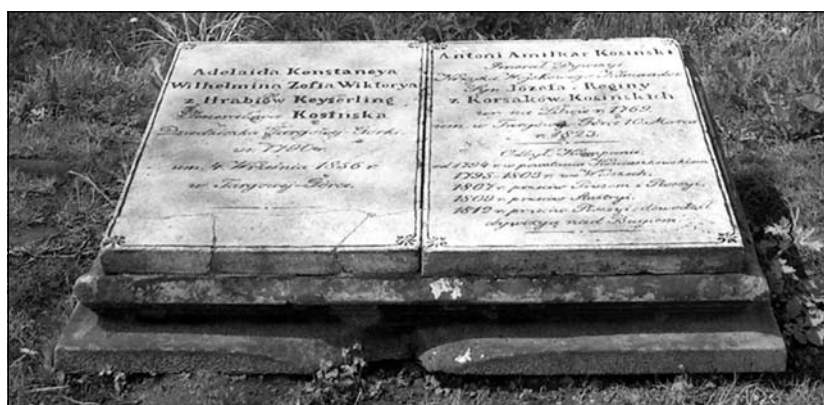 Adelaida Konstancya
Wilhelmina Zofia Wiktorya
z Hrabiów Keyserling
Generałowa Kosińska
Dziedziczka Targowej Górki
ur. 1790 r.
um. 4 Września 1856 r.
w Targowej-Górce.
Antoni Amilkar Kosiński
Generał Dywizyi
Krzyża Wojskowego Kommandor
Syn Józefa i Reginy
z Korsaków Kosińskich
ur. na Litwie r. 1769.
um. w Targowej Górce 10. Marca
r. 1823.
Odbył Kampanie
od 1794 r. w powstaniu Kościuszkowskiem
1795-1803 r. we Włoszech,
1807 r. przeciw Prusom i Rossyi,
1809 r. przeciw Austryi,
1812 r. przeciw Rossyi, dowodził
dywizyą nad Bugiem